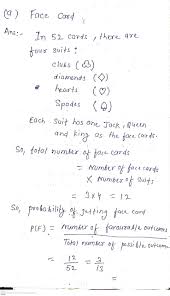 (a) Face Card :
Ans:- In 52 cards, there are
four suits :
clubs (♧)
diamonds (◇)
hearts (♡)
Spades (♤)
Each Suit has one Jack, Queen
and king as the face cards.
So, total number of face cards
= Number of face cards
× Number of suits
= 3×4 = 12
So, probability of getting face card
P(F) = number of favourable outcomes
Total number of possible outcome
= 12/52 = 3/13
=